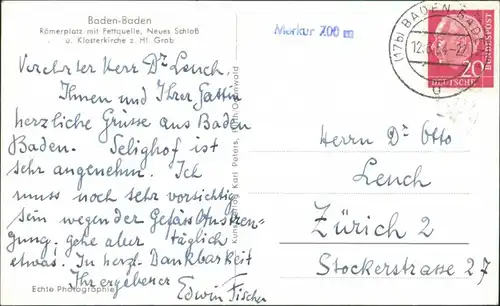 Baden-Baden
Römerplatz mit Fettquelle, Neues Schloß
u. Klosterkirche z. Hl. Grab
Merkur 700 m
(17b) BADEN-BADEN
20
DEUTSCHE
BUNDESPOST
Verehrter Herr Dr Lench.
Ihnen und Ihrer Gattin
herzliche Grüsse aus Baden
Baden. Selighof ist
sehr angenehm. Ich
muss noch sehr vorsichtig
sein wegen der Gefäss Anstren-
gung; gehe aber täglich
etwas. In herzl. Dankbarkeit
Ihr ergebener
Edwin Fischer
Echte Photographie
Kunstverlag Karl Peters, Odenwald
Herrn Dr Otto
Lench
Zürich 2
Stockerstrasse 27